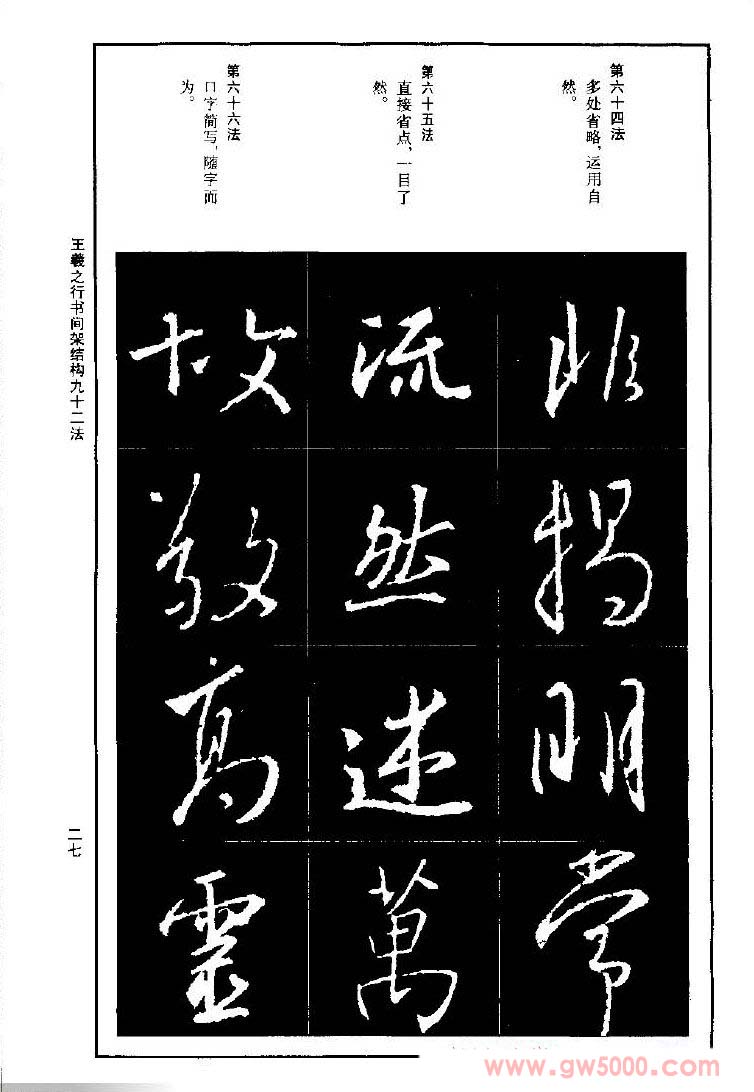 第六十四法
多处省略,运用自
然。
第六十五法
直接省点,一目了
然。
第六十六法
口字简写,随字而
为。
非揭明常
流然述萬
故敬高靈
王羲之行书间架结构九十二法
二七
www.gw5000.com